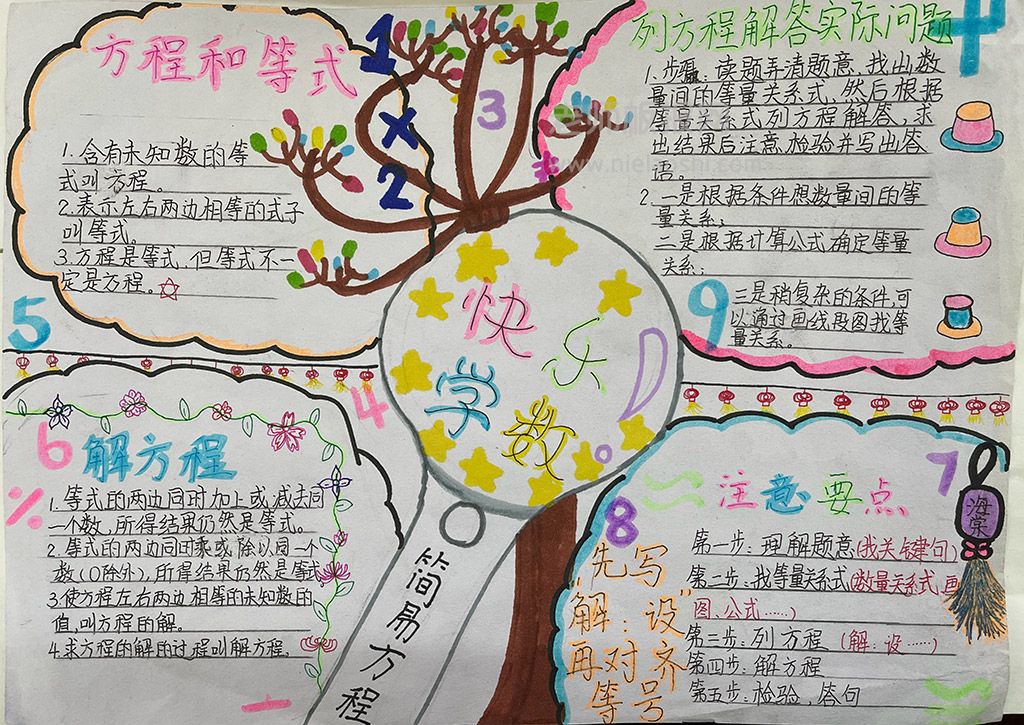 方程和等式
1.含有未知数的等
式叫方程。
2.表示左右两边相等的式子
叫等式。
3.方程是等式,但等式不一
定是方程。
1
×
2
3
列方程解答实际问题
1、步骤:读题弄清题意、找出数
量间的等量关系式,然后根据
等量关系式列方程解答,求
出结果后注意检验并写出答
语。
2、一是根据条件想数量间的等
量关系;
二是根据计算公式确定等量
关系;
三是稍复杂的条件,可
以通过画线段图找等
量关系。
9
5
4
快乐
学数
简易方程
6
%
解方程
1.等式的两边同时加上或减去同
一个数,所得结果仍然是等式。
2.等式的两边同时乘或除以同一个
数(0除外),所得结果仍然是等式
3.使方程左右两边相等的未知数的
值,叫方程的解。
4.求方程的解的过程叫解方程.
7
8
注意要点
海棠
先写
"解:设"
再对齐
等号
第一步:理解题意(找关键句)
第二步:找等量关系式(数量关系式,画
图、公式……)
第三步:列方程(解:设……)
第四步:解方程
第五步:检验,答句